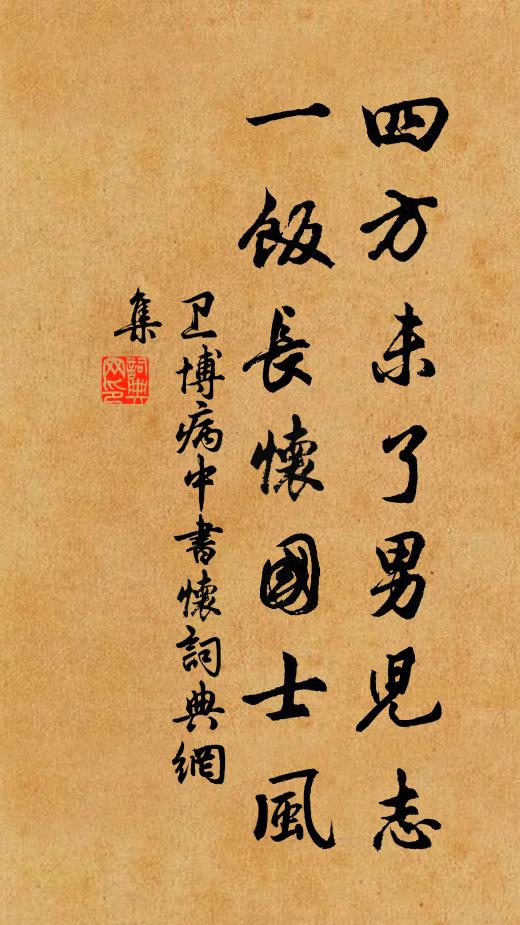 四方未了男児志
一飯長懷國士風
卫博病中書懷詞典網
集
詞典
网印